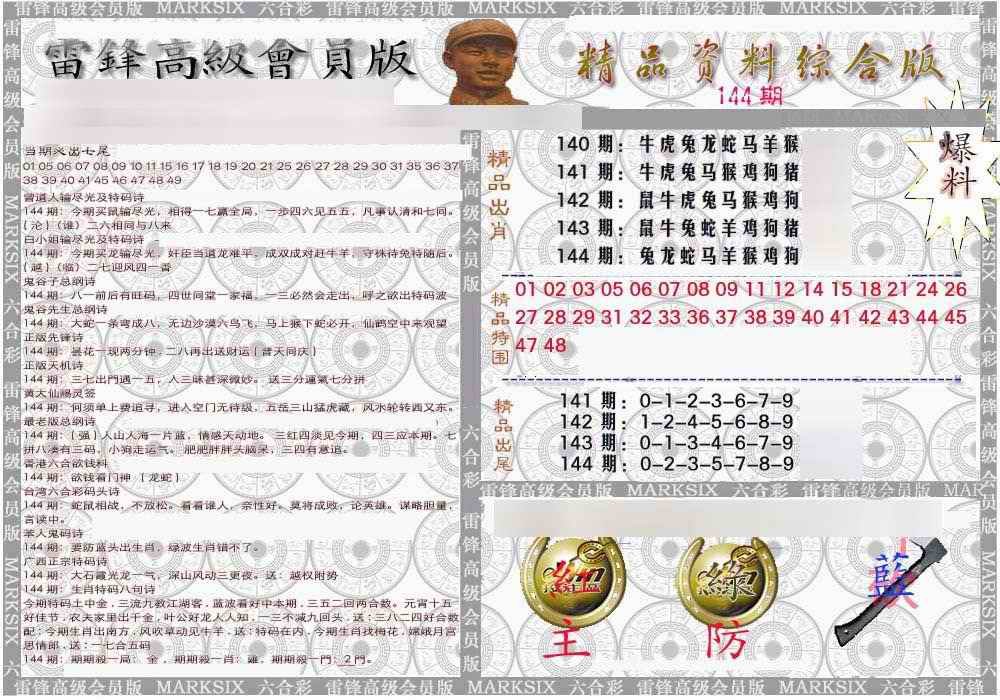 雷锋高级会员版 MARKSIX 六合彩 雷锋高级会员版 MARKSIX 六合彩 雷锋高级会员版
雷鋒高級會員版
精品资料综合版
144期
爆料
当期灵出七尾
01 05 06 07 08 09 10 11 15 16 17 18 19 20 21 25 26 27 28 29 30 31 35 36 37
38 39 40 41 45 46 47 48 49
曾道人输尽光及特码诗
144期：今期买鼠输尽光，相得一七赢全局，一步四六见五五，凡事认清和七同。
{沦}（谁）二六相同与八来
白小姐输尽光及特码诗
144期：今期买龙输尽光，奸臣当道龙难平，成双成对赶牛羊，守株待兔特随后。
{越}（临）二七迎风四一香
鬼谷子总纲诗
144期：八一前后有旺码，四世同堂一家福，一三必然会走出，呼之欲出特码波
鬼谷先生总纲诗
144期：大蛇一条弯成八，无边沙漠六鸟飞，马上猴下蛇必开，仙鹤空中来观望
正版先锋诗
144期：昙花一现两分钟，二八再出送财运{普天同庆}
正版天机诗
144期：三七出門遇一五，入三味甚深微妙。 送三分運氣七分拼
黄大仙赐灵签
144期：何须单上费追寻，进入空门无待级，五岳三山猛虎藏，风水轮转西又东。
最老版总纲诗
144期：{强}人山人海一片蓝，情感天动地。 三红四淡见今期，四三应本期。七
拼八凑有三码，小狗走运气。 肥肥胖胖头脑呆，三四有意追。
香港六合欲钱料
144期：欲钱看门神 {龙蛇}
台湾六合彩码头诗
144期：蛇鼠相战，不放松。看看谁人，奈性好。莫将成败，论英雄。谋略胆量，
言谈中。
苯人鬼码诗
144期：要防蓝头出生肖，绿波生肖错不了。
广西正宗特码诗
144期：大石霞光龙一气，深山风动三更夜。送：越权附势
144期：生肖特码八句诗
今期特码土中金，三流九教江湖客，蓝波看好中本期，三五二回两合数。元宵十五
好佳节，农夫家里出千金，叶公好龙人人知，一三不减九回头，送：三八二四好合数
配：今期生肖出南方，风吹草动见牛羊，送：特码在内，今期生肖找梅花，嫦娥月宫
思情郎，送：一七合五码
144期：期期殺一局： 金 ，期期殺一肖：雞，期期殺一門：2 門。
精品出肖
140 期：牛虎兔龙蛇马羊猴
141 期：牛虎兔马猴鸡狗猪
142 期：鼠牛虎兔马猴鸡狗
143 期：鼠牛兔蛇羊鸡狗猪
144 期：兔龙蛇马羊猴鸡狗
精品特围
01 02 03 05 06 07 08 09 11 12 14 15 18 21 24 26
27 28 29 31 32 33 36 37 38 39 40 41 42 43 44 45
47 48
精品出尾
141 期：0-1-2-3-6-7-9
142 期：1-2-4-5-6-8-9
143 期：0-1-3-4-6-7-9
144 期：0-2-3-5-7-8-9
雷锋高级会员版 MARKSIX 六合彩 雷锋高级会员版
綠
藍
主
防
雷锋高级会员版 MARKSIX 六合彩 雷锋高级会员版 MARKSIX 六合彩 雷锋高级会员版